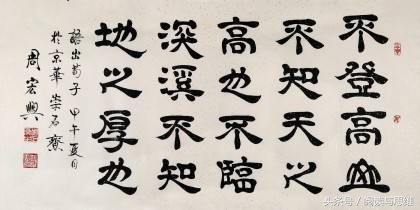 不登高山
不知天之
高也不臨
深溪不知
地之厚也
語出荀子 甲午夏日
於京華崇石齋
周宏興
头条号 / 阅读与思维